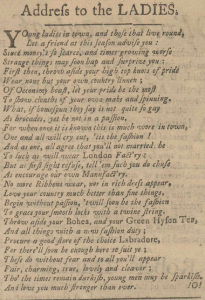 Address to the LADIES.
YOung ladies in town, and those that live round,
Let a friend at this season advise you:
Since money's so scarce, and times growing worse
Strange things may soon hap and surprize you:
First then, throw aside your high top knots of pride
Wear none but your own country linnen;
Of Oeconomy boast, let your pride be the most
To show cloaths of your own make and spinning.
What, if homespun they say is not quite so gay
As brocades, yet be not in a passion,
For when once it is known this is much wore in town,
One and all will cry out, 'tis the fashion!
And as one, all agree that you'll not married be
To such as will wear London Fact'ry:
But at first sight refuse, tell 'em such you do chuse
As encourage our own Manufact'ry.
No more Ribbons wear, nor in rich dress appear,
Love your country much better than fine things,
Begin without passion, 'twill soon be the fashion
To grace your smooth locks with a twine string.
Throw aside your Bohea, and your Green Hyson Tea,
And all things with a new fashion duty;
Procure a good store of the choice Labradore,
For there'll soon be enough here to suit ye;
These do without fear and to all you'll appear
Fair, charming, true, lovely and clever;
Tho' the times remain darkish, young men may be sparkish.
And love you much stronger than ever.
!O!